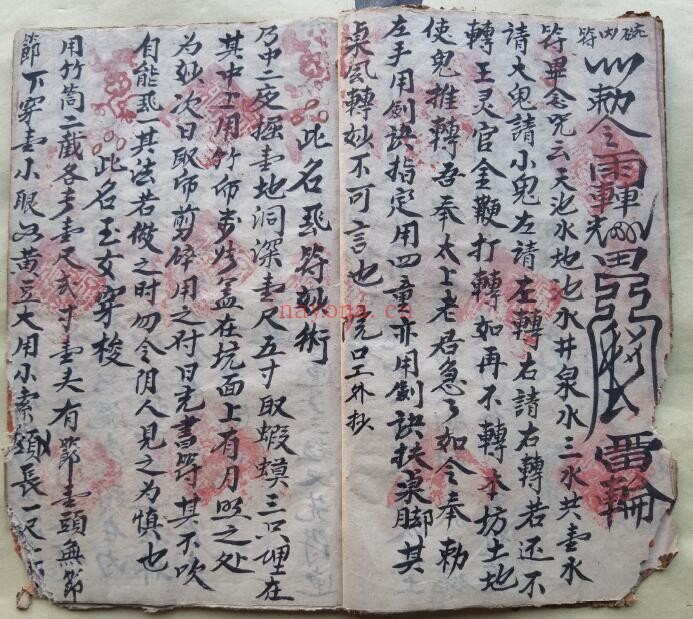 硫出符
敕令雨轉
雷輪
符畢念咒云天池水地也水井泉水三水共壹水
請大鬼請小鬼左請左轉右請右轉若还不
轉王灵官金鞭打轉如再不轉本坊土地
使鬼推轉吾奉太上老君急々如令奉勅
左手用劍訣指定用四童亦用劍訣扶桌脚其
桌風轉妙不可言也咒口工外抄
此名飛符妙術
乃中二处掘壹地洞深壹尺五寸取蝦蟆三只埋在
其中上用竹布蓋在坑面上有月照之处
为妙次日取布剪碎用之付日克書符其不吹
自能飛其法若俊之时勿令阴人見之为慎也
此名玉女穿梭
用竹筒二截各長壹尺弍寸壹头有節壹頭無節
節下穿壹小眼如黄豆大用小索頭長一尺
navona.cn